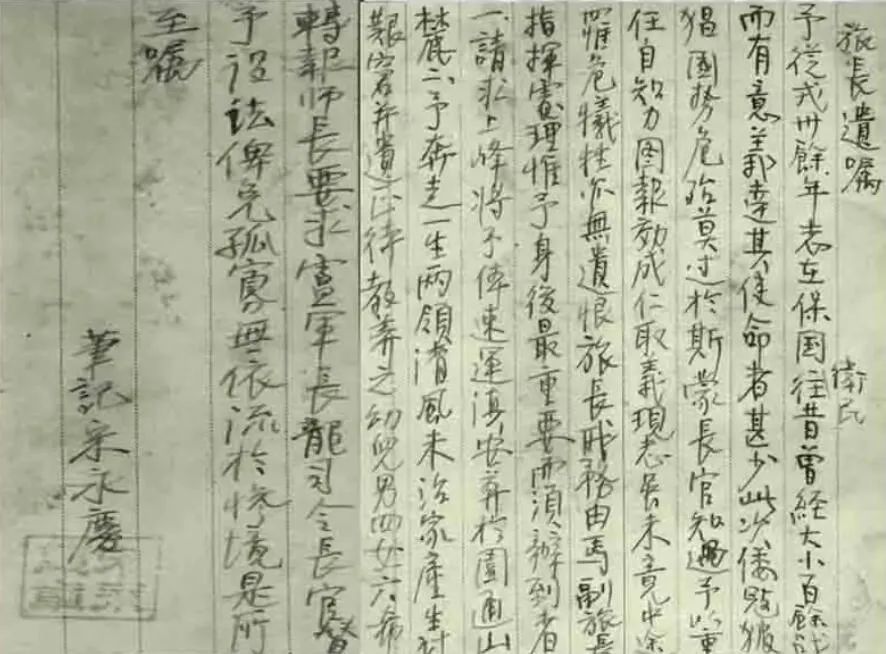 旅長遺囑
予從戎卅餘年志在保国衛民往昔曾経大小百餘戰
而有意義達其使命者甚少此次倭毀猴
猖國勢危殆莫过於斯蒙長官知遇予以重
任自知力图報効成仁取義現志果未竟中途
罹危犧牲亦無遺恨旅長职務由馬副旅長
指揮處理惟予身後最重要而須辦到者
一、請求上峰將予体速運滇安葬於圓通山
麓二、予奔走一生两領清風未治家產生前
艱窘并遺正待教养之幼兒男四女六希
轉報师長要求盧軍長龍司令長官督
予設法俾免孤寡無依流於慘境是所
至囑
筆記宋永慶